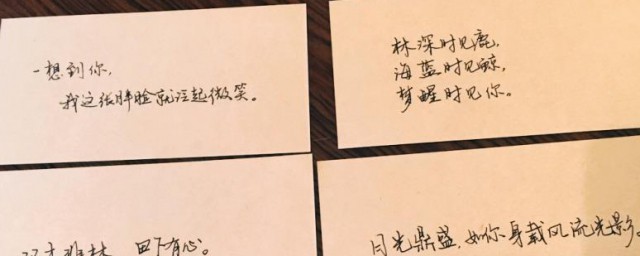 一想到你,
我这张胖脸就泛起微笑。
林深时见鹿,
海蓝时见鲸,
梦醒时见你。
双木非林,田下有心。
月光鼎盛,如你身载风流光影。